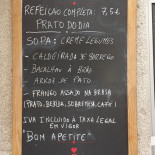 REFEIÇÃO COMPLETA: 7,5€
PRATO DO DIA
SOPA: CREME LEGUMES
- CALDEIRADA DE BORREGO
- BACALHAU À BRÁS
- ARROZ DE PATO
- FRANGO ASSADO NA BRASA
(PRATO, BEBIDA, SOBREMESA, CAFÉ)
IVA INCLUIDO À TAXA LEGAL
EM VIGOR
"BOM APETITE"